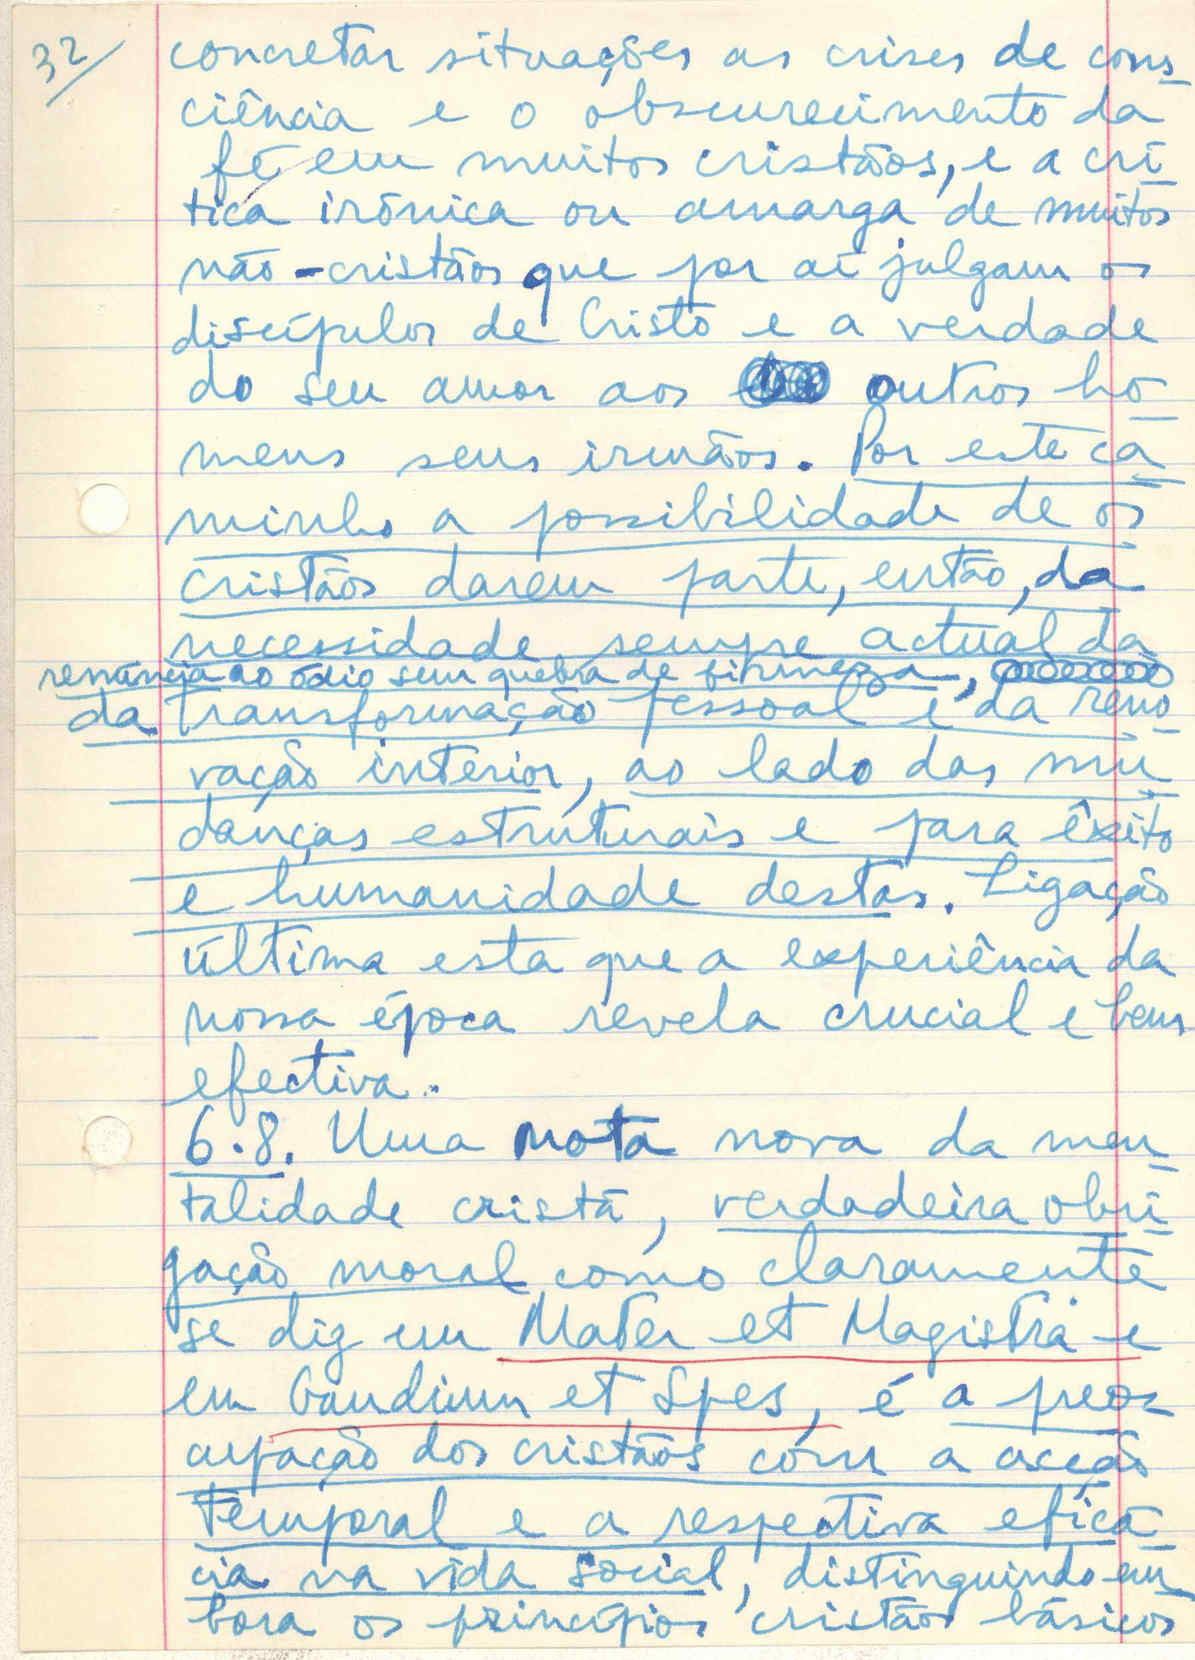 32
concretas situações as crises de cons_
ciência e o obscurecimento da
fé em muitos cristãos, e a crí_
tica irónica ou amarga de muitos
não-cristãos que por aí julgam os
discípulos de Cristo e a verdade
do seu amor aos outros ho_
mens seus irmãos. Por este ca_
minho a possibilidade de os
cristãos darem parte, então, da
necessidade sempre actual da
renúncia ao ódio sem quebra de firmeza,
da transformação pessoal e da reno_
vação interior, ao lado das mu_
danças estruturais e para êxito
e humanidade destas. Ligação
última esta que a experiência da
nossa época revela crucial e bem
efectiva.
6.8. Uma nota nova da men_
talidade cristã, verdadeira obri_
gação moral como claramente
se diz em Mater et Magistra e
em Gaudium et Spes, é a preo_
cupação dos cristãos com a acção
temporal e a respectiva eficá_
cia na vida social, distinguindo em_
bora os princípios cristãos básicos